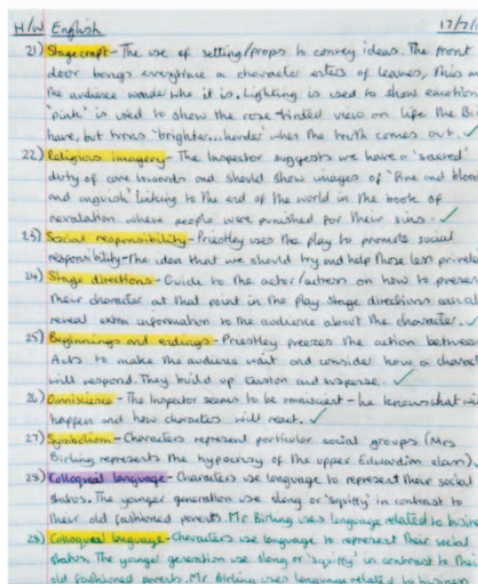 H/W English 17/7/1
21) Stagecraft - The use of setting/props to convey ideas. The front
door bangs everytime a character enters of leaves, this m
the audience wonder who it is. Lighting is used to show emotion
'pink' is used to show the rose tinted view on life the Bir
have, but turns 'brighter...harder' when the truth comes out. ✓
22) Religious imagery - The Inspector suggests we have a 'sacred'
duty of care towards and should show images of "fire and blood
and anguish" linking to the end of the world in the book of
revalation where people were punished for their sins. ✓
23) Social responsibility - Priestley uses the play to promote social
responsibility - The idea that we should try and help those less privele
24) Stage directions - Guide to the actor/actress on how to presen
their character at that point in the play. Stage directions can al
reveal extra information to the audience about the character. ✓
25) Beginnings and endings - Priestley freezes the action between
Acts to make the audience wait and consider how a charact
will respond. They build up tension and suspense. ✓
26) Omniscience - The Inspector seems to be omniscient - he knows what wi
happen and how characters will react. ✓
27) Symbolism - Characters represent particular social groups (Mrs
Birling represents the hypocrisy of the upper Edwardian class). ✓
28) Colloqueal language - Characters use language to represent their social
status. The younger generation use slang or 'squiffy' in contrast to
their old fashioned parents. Mr Birling uses language related to busine
28) Colloqueal language - Characters use language to represent their social
status. The younger generation use slang or 'squiffy' in contrast to their
old fashioned parents. Mr Birling uses language related to business